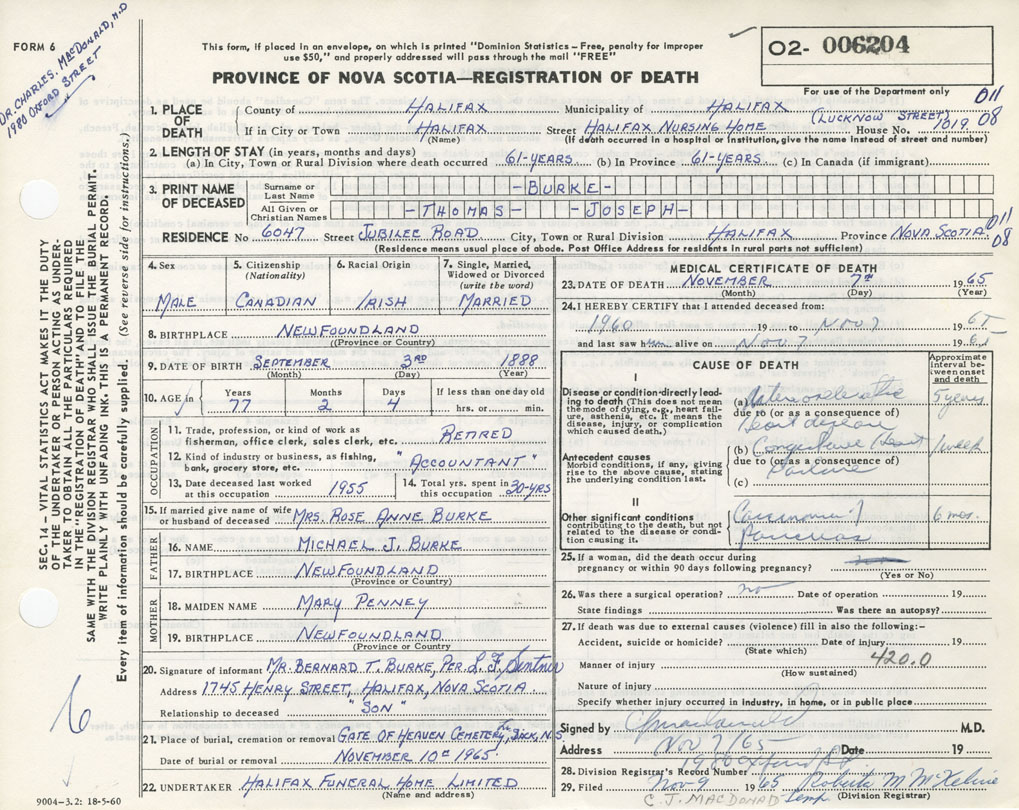 DR. CHARLES. MACDONALD, M.D
1980 OXFORD STREET
FORM 6
This form, if placed in an envelope, on which is printed "Dominion Statistics – Free, penalty for improper
use $50," and properly addressed will pass through the mail "FREE"
O2- 006204
PROVINCE OF NOVA SCOTIA—REGISTRATION OF DEATH
For use of the Department only
SEC. 14 – VITAL STATISTICS ACT MAKES IT THE DUTY
OF THE UNDERTAKER OR PERSON ACTING AS UNDER-
TAKER TO OBTAIN ALL THE PARTICULARS REQUIRED
IN THE "REGISTRATION OF DEATH" AND TO FILE THE
SAME WITH THE DIVISION REGISTRAR WHO SHALL ISSUE THE BURIAL PERMIT.
WRITE PLAINLY WITH UNFADING INK. THIS IS A PERMANENT RECORD.
Every item of information should be carefully supplied. (See reverse side for instructions.)
1. PLACE OF DEATH County of HALIFAX Municipality of HALIFAX 011
(LUCKNOW STREET) 08
If in City or Town HALIFAX Street HALIFAX NURSING HOME House No. 1019
(Name) (If death occurred in a hospital or institution, give the name instead of street and number)
2. LENGTH OF STAY (in years, months and days)
(a) In City, Town or Rural Division where death occurred 61-YEARS (b) In Province 61-YEARS (c) In Canada (if immigrant)
3. PRINT NAME OF DECEASED Surname or Last Name -BURKE-
All Given or Christian Names -THOMAS- -JOSEPH-
011
RESIDENCE No 6047 Street JUBILEE ROAD City, Town or Rural Division HALIFAX Province NOVA SCOTIA 08
(Residence means usual place of abode. Post Office Address for residents in rural parts not sufficient)
4. Sex 5. Citizenship (Nationality) 6. Racial Origin 7. Single, Married, Widowed or Divorced (write the word)
MALE CANADIAN IRISH MARRIED
8. BIRTHPLACE NEWFOUNDLAND
(Province or Country)
9. DATE OF BIRTH SEPTEMBER 3RD 1888
(Month) (Day) (Year)
10. AGE in Years Months Days If less than one day old
77 2 4 hrs. or min.
OCCUPATION
11. Trade, profession, or kind of work as
fisherman, office clerk, sales clerk, etc. RETIRED
12. Kind of industry or business, as fishing,
bank, grocery store, etc. "ACCOUNTANT"
13. Date deceased last worked at this occupation 1955 14. Total yrs. spent in this occupation 30-YRS
15. If married give name of wife
or husband of deceased MRS. ROSE ANNE BURKE
FATHER
16. NAME MICHAEL J. BURKE
17. BIRTHPLACE NEWFOUNDLAND
(Province or Country)
MOTHER
18. MAIDEN NAME MARY PENNEY
19. BIRTHPLACE NEWFOUNDLAND
(Province or Country)
20. Signature of informant MR. BERNARD T. BURKE, PER. L. F.
Address 1745 HENRY STREET, HALIFAX, NOVA SCOTIA
Relationship to deceased "SON"
21. Place of burial, cremation or removal GATE OF HEAVEN CEMETERY, N.S.
Date of burial or removal NOVEMBER 10th 1965
22. UNDERTAKER HALIFAX FUNERAL HOME LIMITED
(Name and address)
9004–3.2: 18-5-60
MEDICAL CERTIFICATE OF DEATH
23. DATE OF DEATH NOVEMBER 7th 1965
(Month) (Day) (Year)
24. I HEREBY CERTIFY that I attended deceased from:
1960 19 to Nov 7 1965
and last saw him alive on Nov 7 196
CAUSE OF DEATH
Approximate interval between onset and death
I
Disease or condition directly lead-
ing to death (This does not mean
the mode of dying, e.g., heart fail-
ure, asthenia, etc. It means the
disease, injury, or complication
which caused death.)
(a) Arteriosclerotic 5 years
due to (or as a consequence of)
heart disease
Antecedent causes
Morbid conditions, if any, giving
rise to the above cause, stating
the underlying condition last.
(b) Congestive heart 1 week
due to (or as a consequence of)
failure
(c)
II
Other significant conditions
contributing to the death, but not
related to the disease or condi-
tion causing it.
Carcinoma of 6 mos.
Pancreas
25. If a woman, did the death occur during
pregnancy or within 90 days following pregnancy?
(Yes or No)
26. Was there a surgical operation? no Date of operation 19
State findings Was there an autopsy?
27. If death was due to external causes (violence) fill in also the following:-
Accident, suicide or homicide? Date of injury 19
(State which)
Manner of injury 420.0
(How sustained)
Nature of injury
Specify whether injury occurred in industry, in home, or in public place
Signed by CJ MacDonald M.D.
Address Nov 7/65 Date 19
1980 Oxford St.
28. Division Registrar's Record Number
29. Filed Nov 9 1965 Roberta M McKelvie
C. J. MACDONALD Temp (Division Registrar)